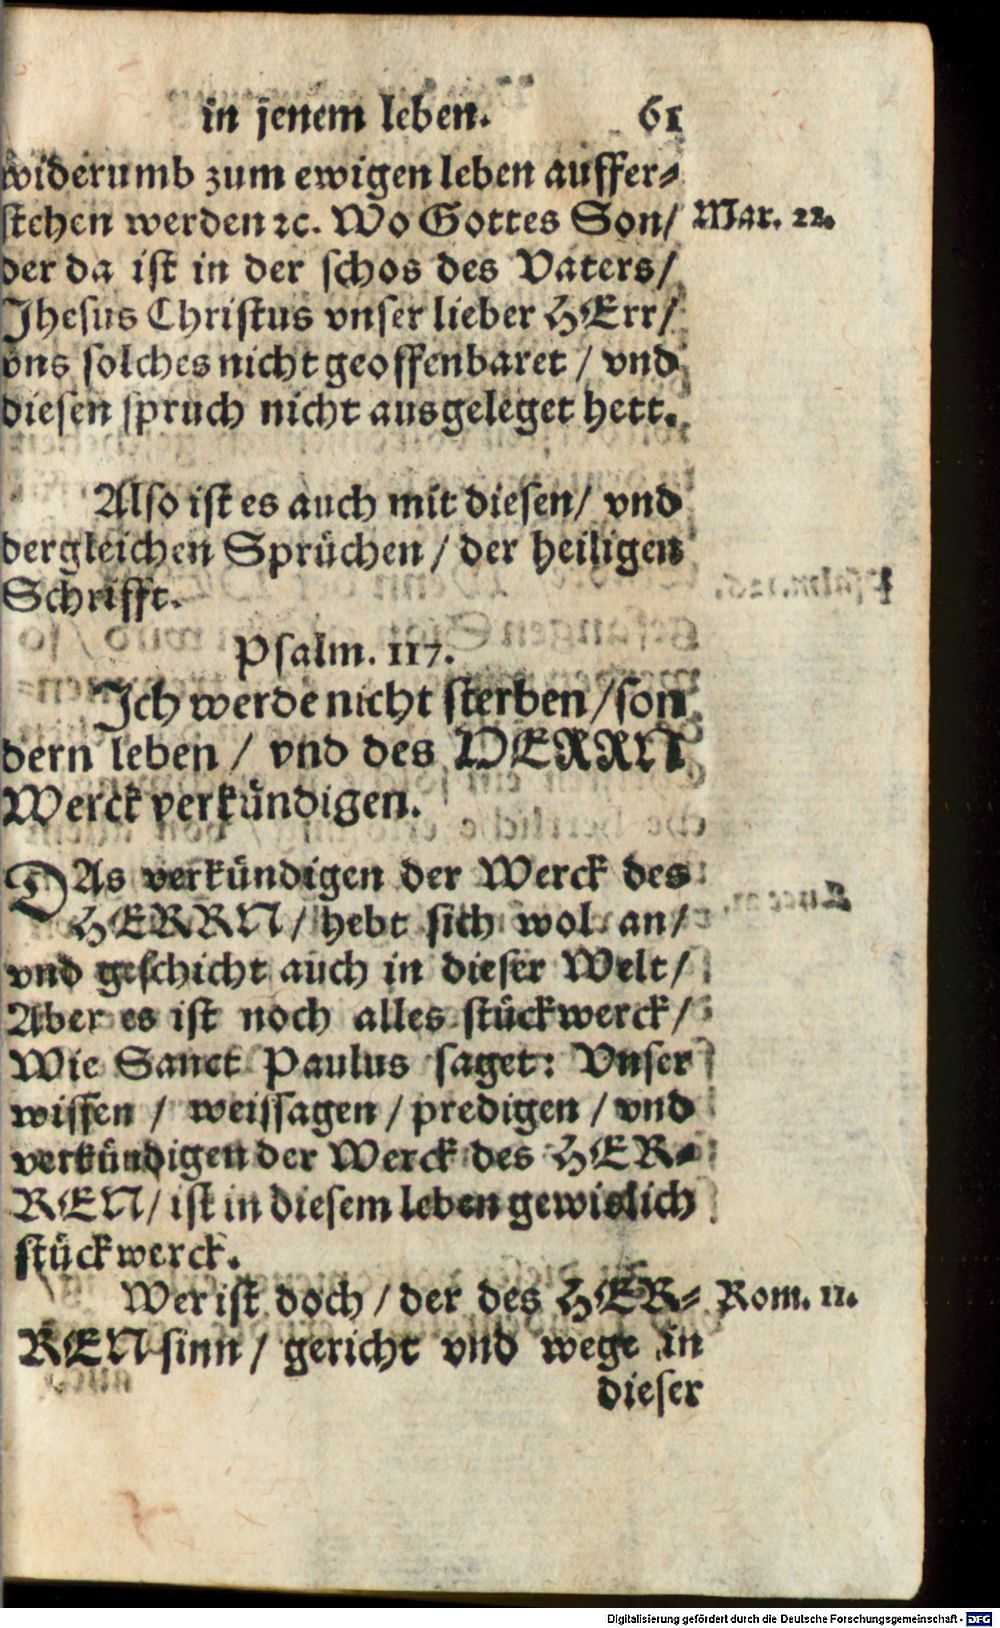 in jenem leben. 61
widerumb zum ewigen leben auffer⸗
stehen werden ꝛc. Wo Gottes Son/ Mar. 22.
der da ist in der schos des Vaters/
Jhesus Christus vnser lieber HErr/
vns solches nicht geoffenbaret / vnd
diesen spruch nicht ausgeleget hett.
Also ist es auch mit diesen/ vnd
dergleichen Sprüchen / der heiligen
Schrifft.
Psalm. 117.
Ich werde nicht sterben /son
dern leben / vnd des HERRN
Werck verkündigen.
DAs verkündigen der Werck des
HERRN/ hebt sich wol an/
vnd geschicht auch in dieser Welt/
Aber es ist noch alles stückwerck/
Wie Sanct Paulus saget: Vnser
wissen / weissagen / predigen / vnd
verkündigen der Werck des HER⸗
REN/ ist in diesem leben gewislich
stückwerck.
Wer ist doch / der des HER⸗ Rom. 11.
REN sinn / gericht vnd wege in
dieser
Digitalisierung gefördert durch die Deutsche Forschungsgemeinschaft - DFG